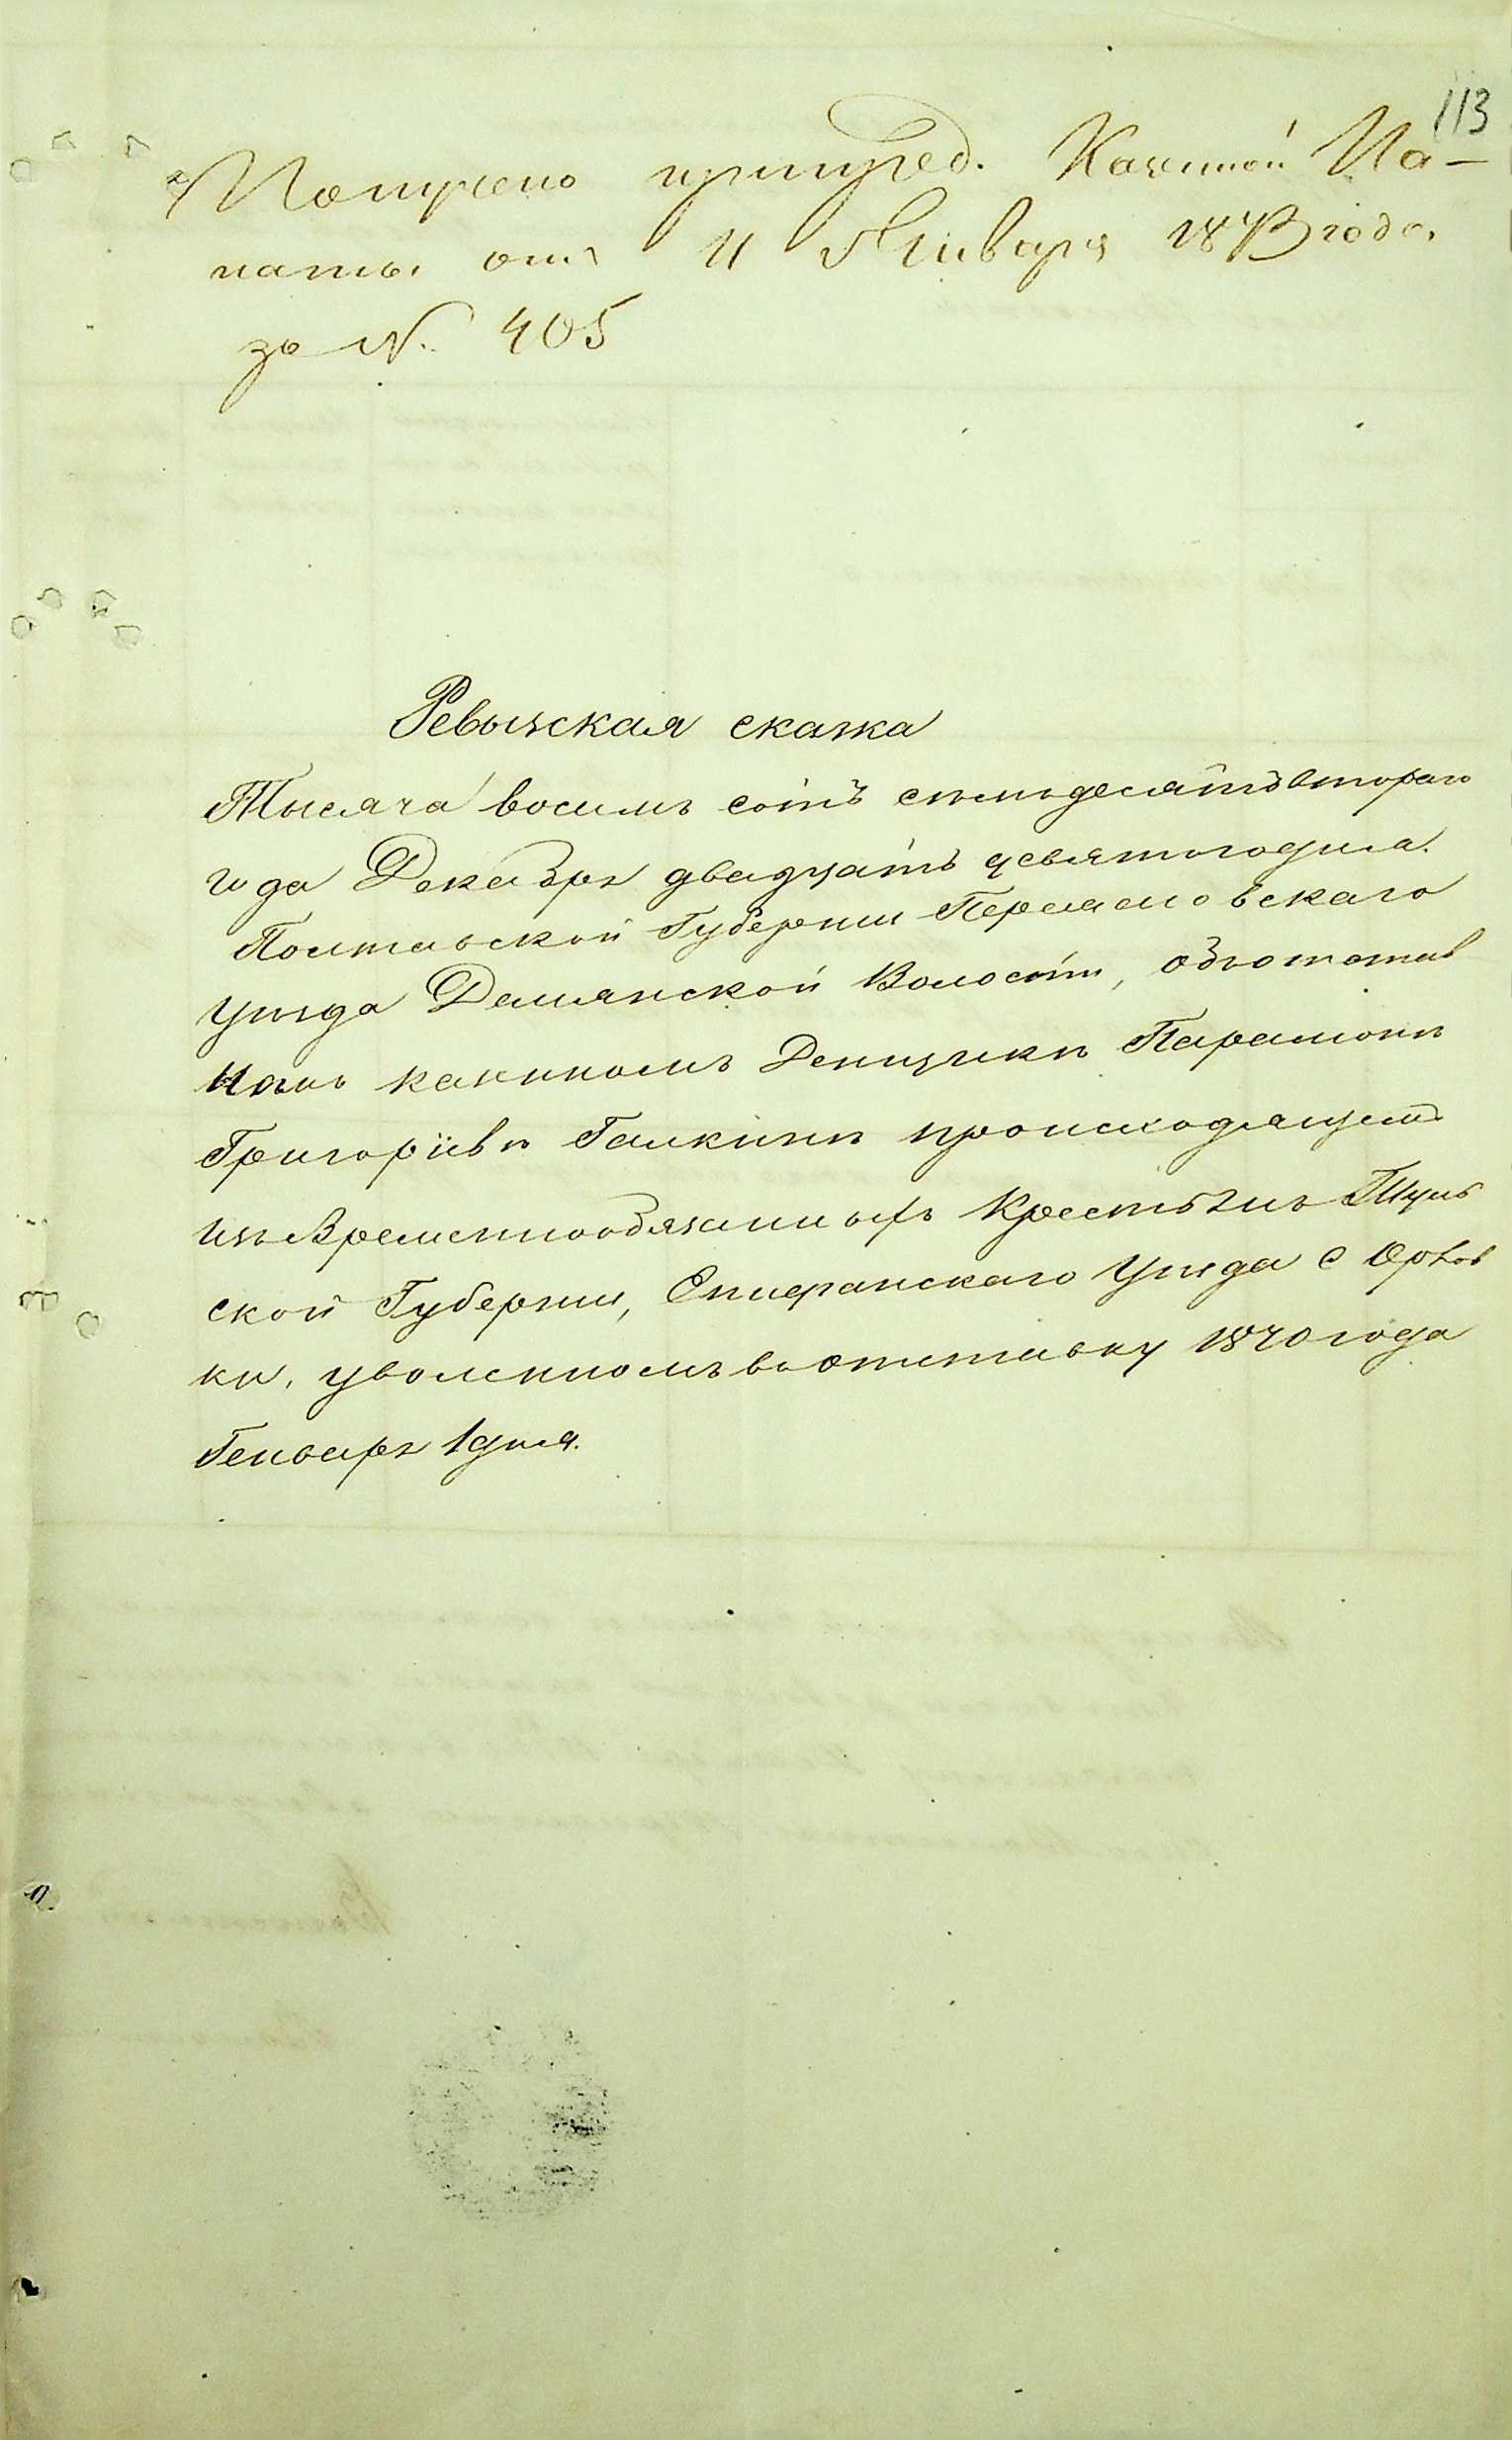 113
Получено при пред. Казенной Па-
латы отъ 11 Января 1873 года
за №. 405
Ревызская сказка
Тысяча восимъ сотъ семьдесятъ втораго
года Декабря двадцать девятого дня.
Полтавской Губернии Переясловскаго
Уѣзда Демянской Волости, объ отстав
номъ казенномъ Денщикѣ Парамонѣ
Григоріевѣ Галкинѣ происходящемъ
изъ Временнообязанныхъ Крестьянъ Туль
ской Губернии, Епифанскаго Уѣзда с Орлов
ки, уволенномъ въ отставку 1870 года
Генваря 1 дня.